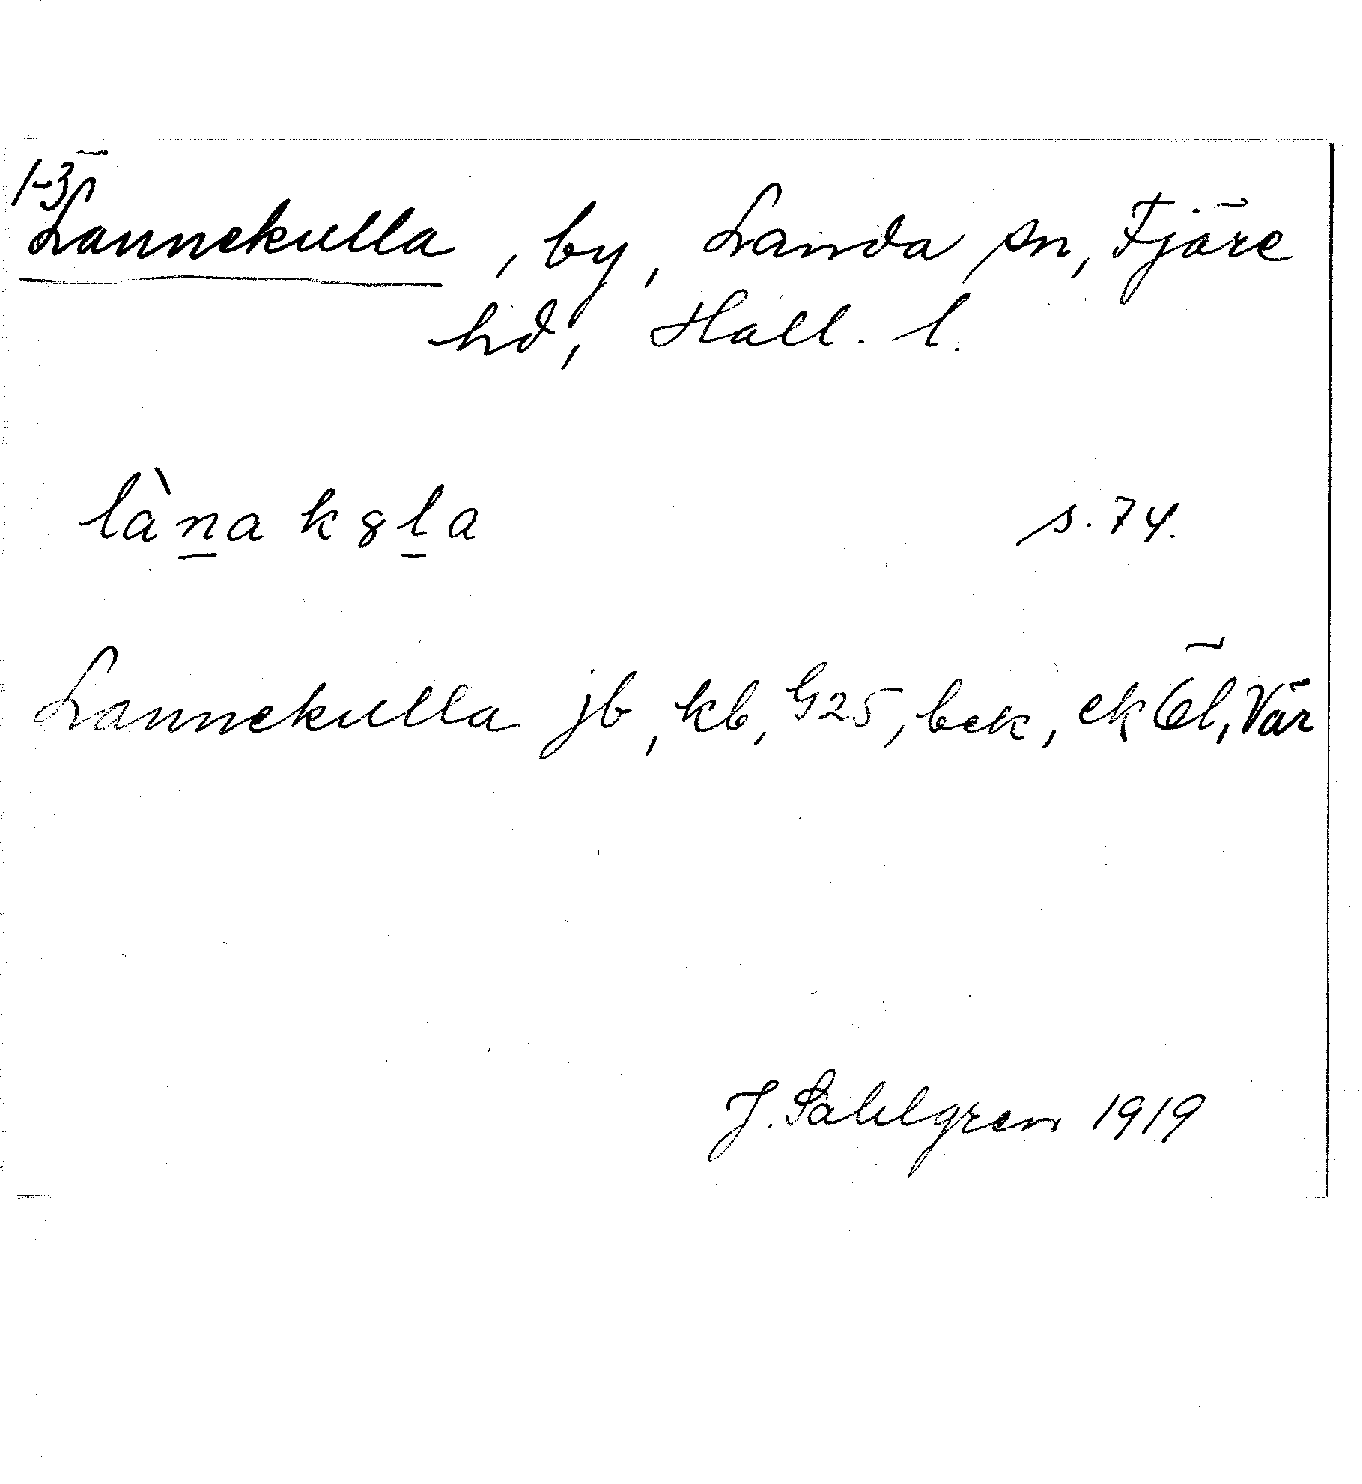 1-3
Lannekulla, by, Landa sn, Fjäre
hd, Hall. l.
là̱na k8ḻa s. 74.
Lannekulla jb, kb, G25, bek, ek Öl, Vär
J. Sahlgren 1919